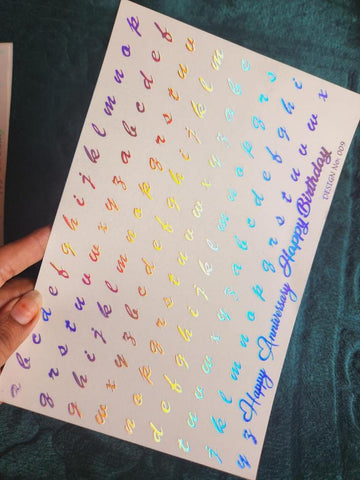 a b c d e f g h i j k l m n o p
q r s t u v w x y z a b c d e f
g h i j k l m n o p q r s t u v
w x y z a b c d e f g h i j k l m
n o p q r s t u v w x y z a b c
d e f g h i j k l m n o p q r s
t u v w x y z a b c d e f g h i
k l m n o p q r s t u v w x
y z Happy Anniversary Happy Birthday
DESIGN No: 009